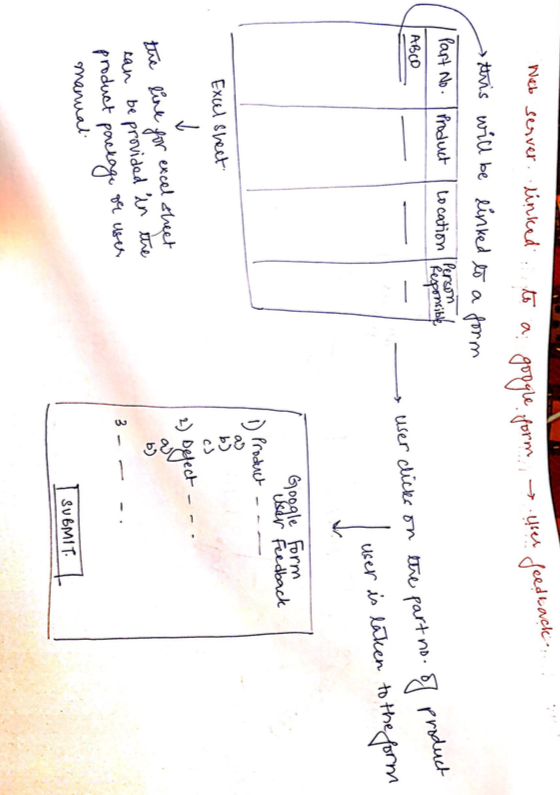 Web server linked to a google form → user feedback
→ this will be linked to a form
Part No. Product Location Person Responsible
ABCD
Excel sheet.
the link for excel sheet
can be provided in the
product package or user
manual.
→ user clicks on the part no. of product
user is taken to the form
Google Form
User Feedback
1) Product - - - -
a)
b)
c)
2) Defect - - - .
a)
b)
3 - - - .
SUBMIT.